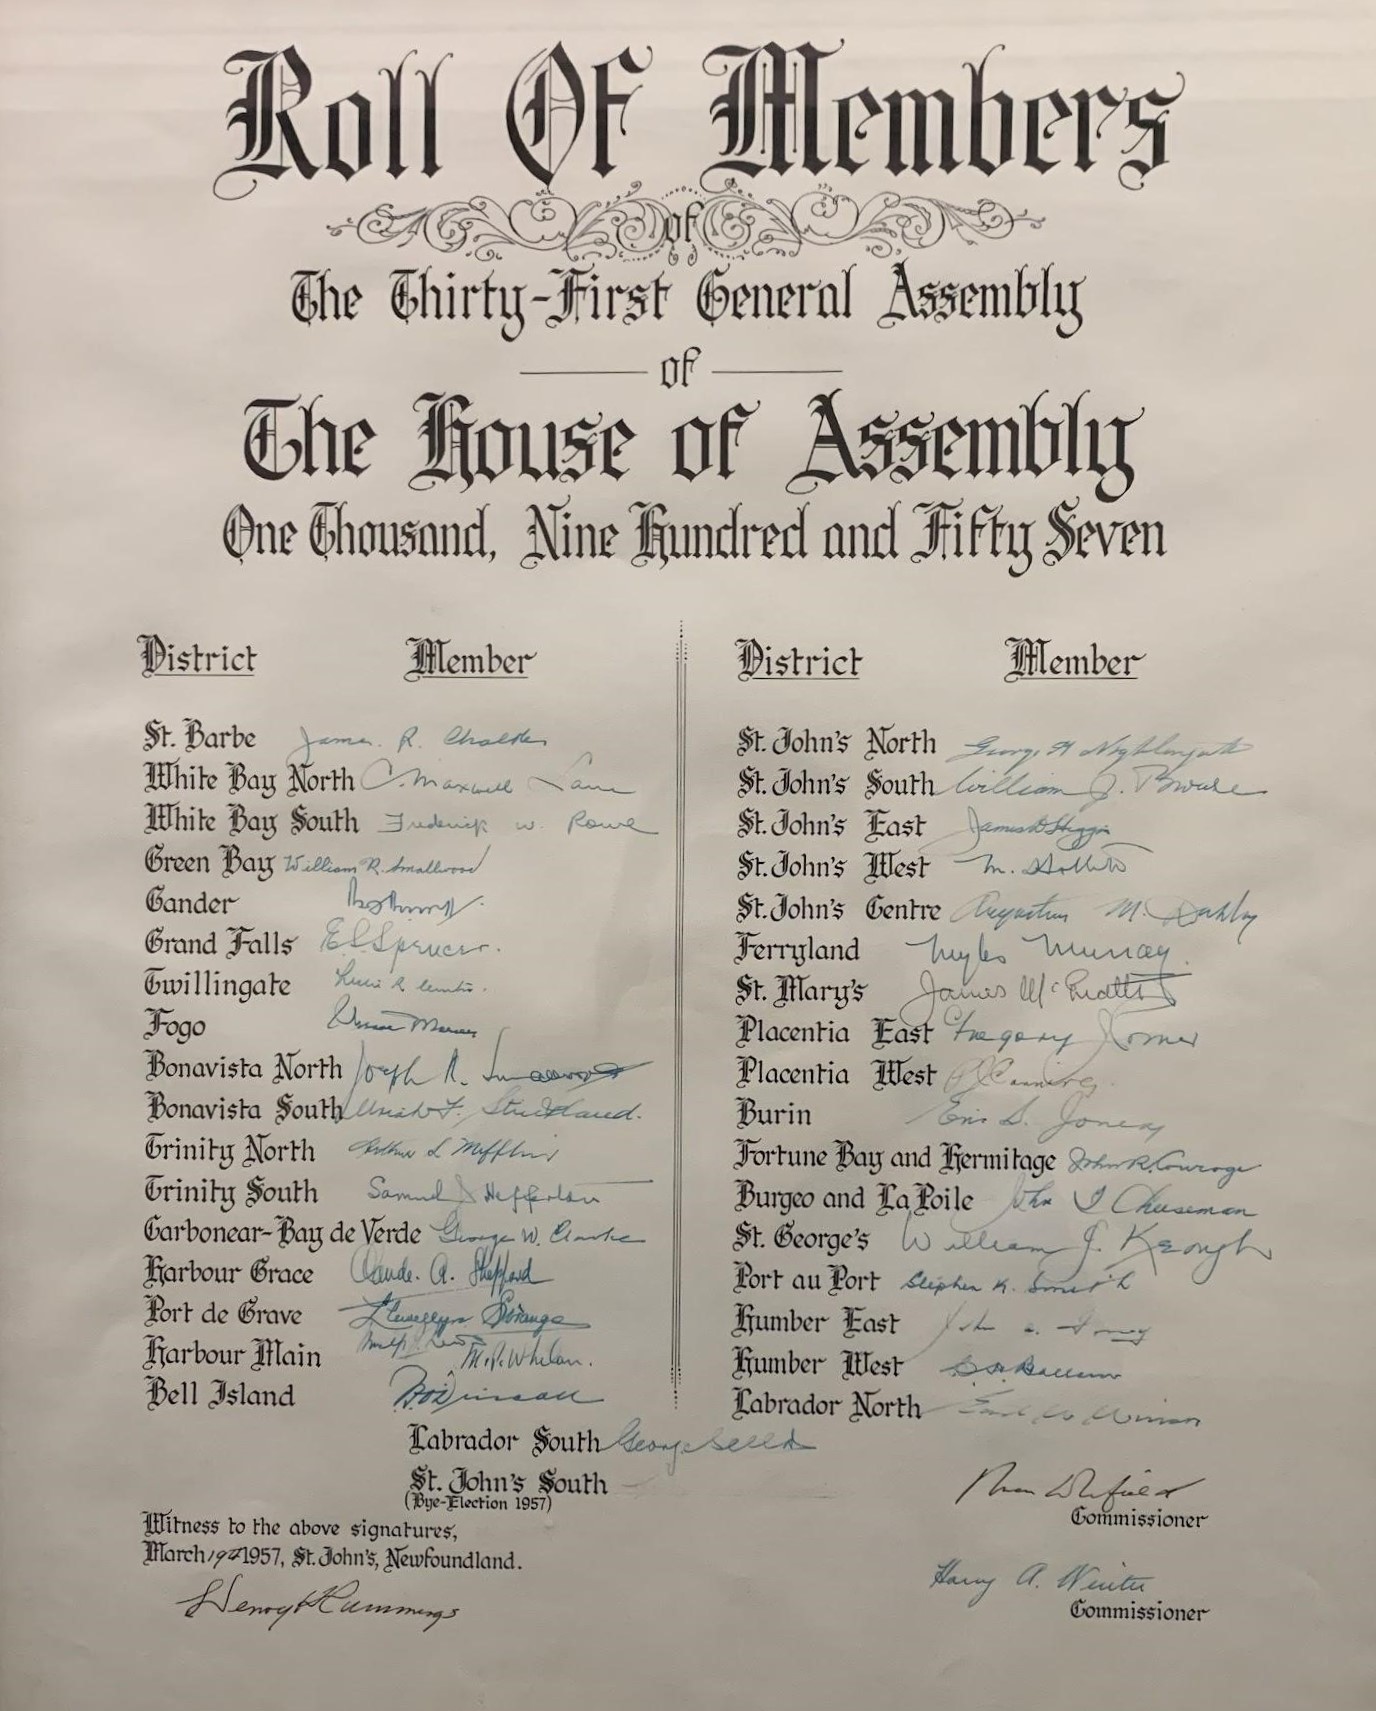 Roll Of Members
of
The Thirty-First General Assembly
of
The House of Assembly
One Thousand, Nine Hundred and Fifty Seven
District Member
St. Barbe James R. Chalker
White Bay North C. Maxwell Lane
White Bay South Frederick W. Rowe
Green Bay William R. Smallwood
Gander
Grand Falls E.S. Spencer.
Twillingate
Fogo
Bonavista North Joseph R. Smallwood
Bonavista South Uriah F. Strickland.
Trinity North Arthur S Mifflin
Trinity South Samuel J Hefferton
Carbonear-Bay de Verde George W. Clarke
Harbour Grace Claude. A. Sheppard
Port de Grave Llewellyn Strange
Harbour Main M.P. Whelan.
Bell Island
District Member
St. John's North George H Nightingale
St. John's South William J. Browne
St. John's East James D Higgins
St. John's West
St. John's Centre Augustine M. Duffy
Ferryland Myles Murray.
St. Mary's James McGrath
Placentia East Gregory
Placentia West P Canning.
Burin Eric S. Jones
Fortune Bay and Hermitage John R. Courage
Burgeo and La Poile John T Cheeseman
St. George's William J. Keough
Port au Port Stephen K. Smith
Humber East
Humber West
Labrador North Earl W Winsor
Labrador South George Sellars
St. John's South
(Bye-Election 1957)
Witness to the above signatures,
March 19th 1957, St. John's, Newfoundland.
Henry Cummings
Commissioner
Harry A. Winter
Commissioner